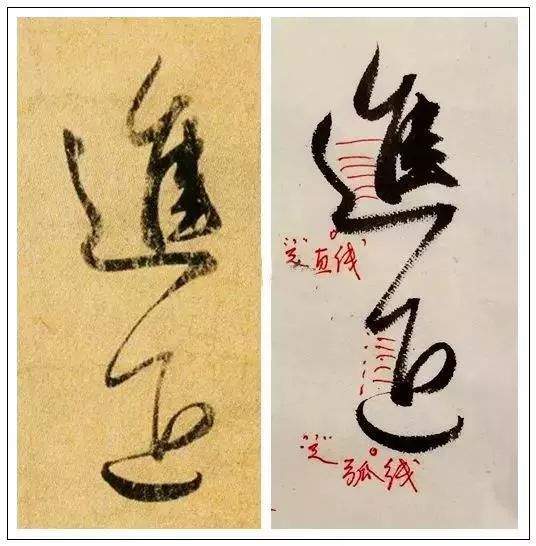 進
進
“辶”直线
“辶”弧线